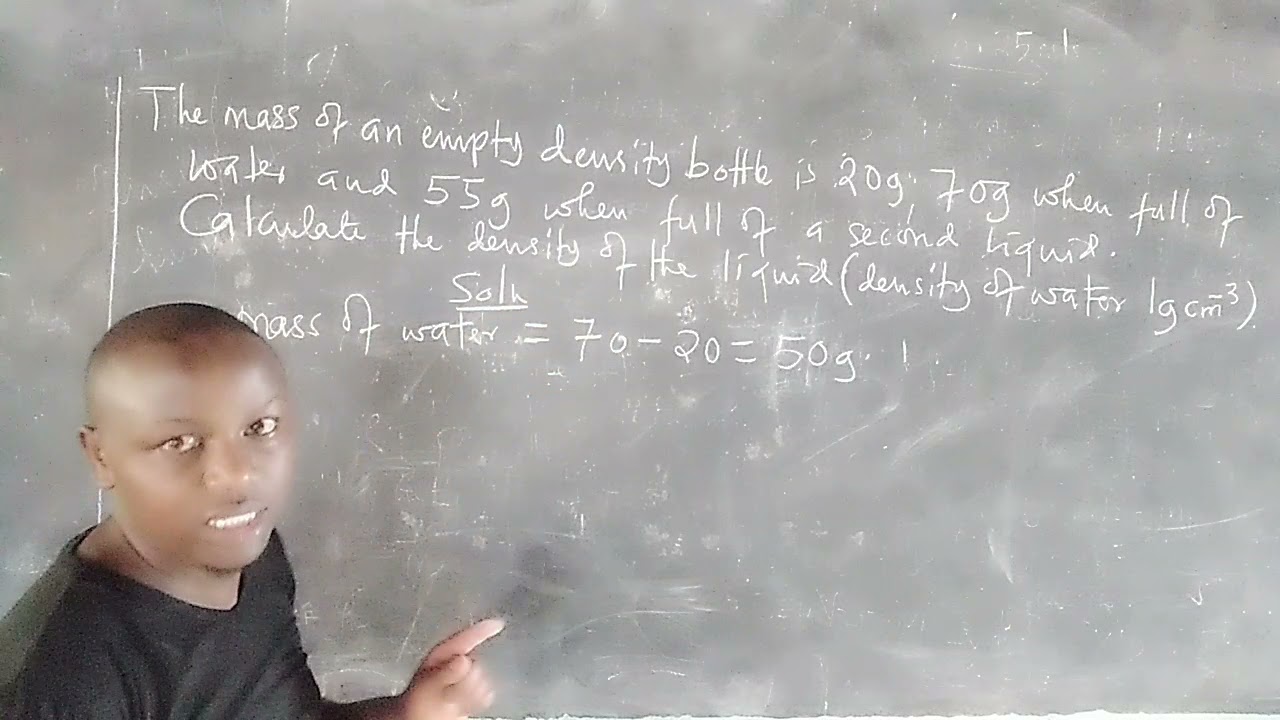 The mass of an empty density bottle is 20g, 70g when full of
water and 55g when full of a second liquid.
Calculate the density of the liquid (density of water 1gcm⁻³)
Soln
mass of water = 70 - 20 = 50g.